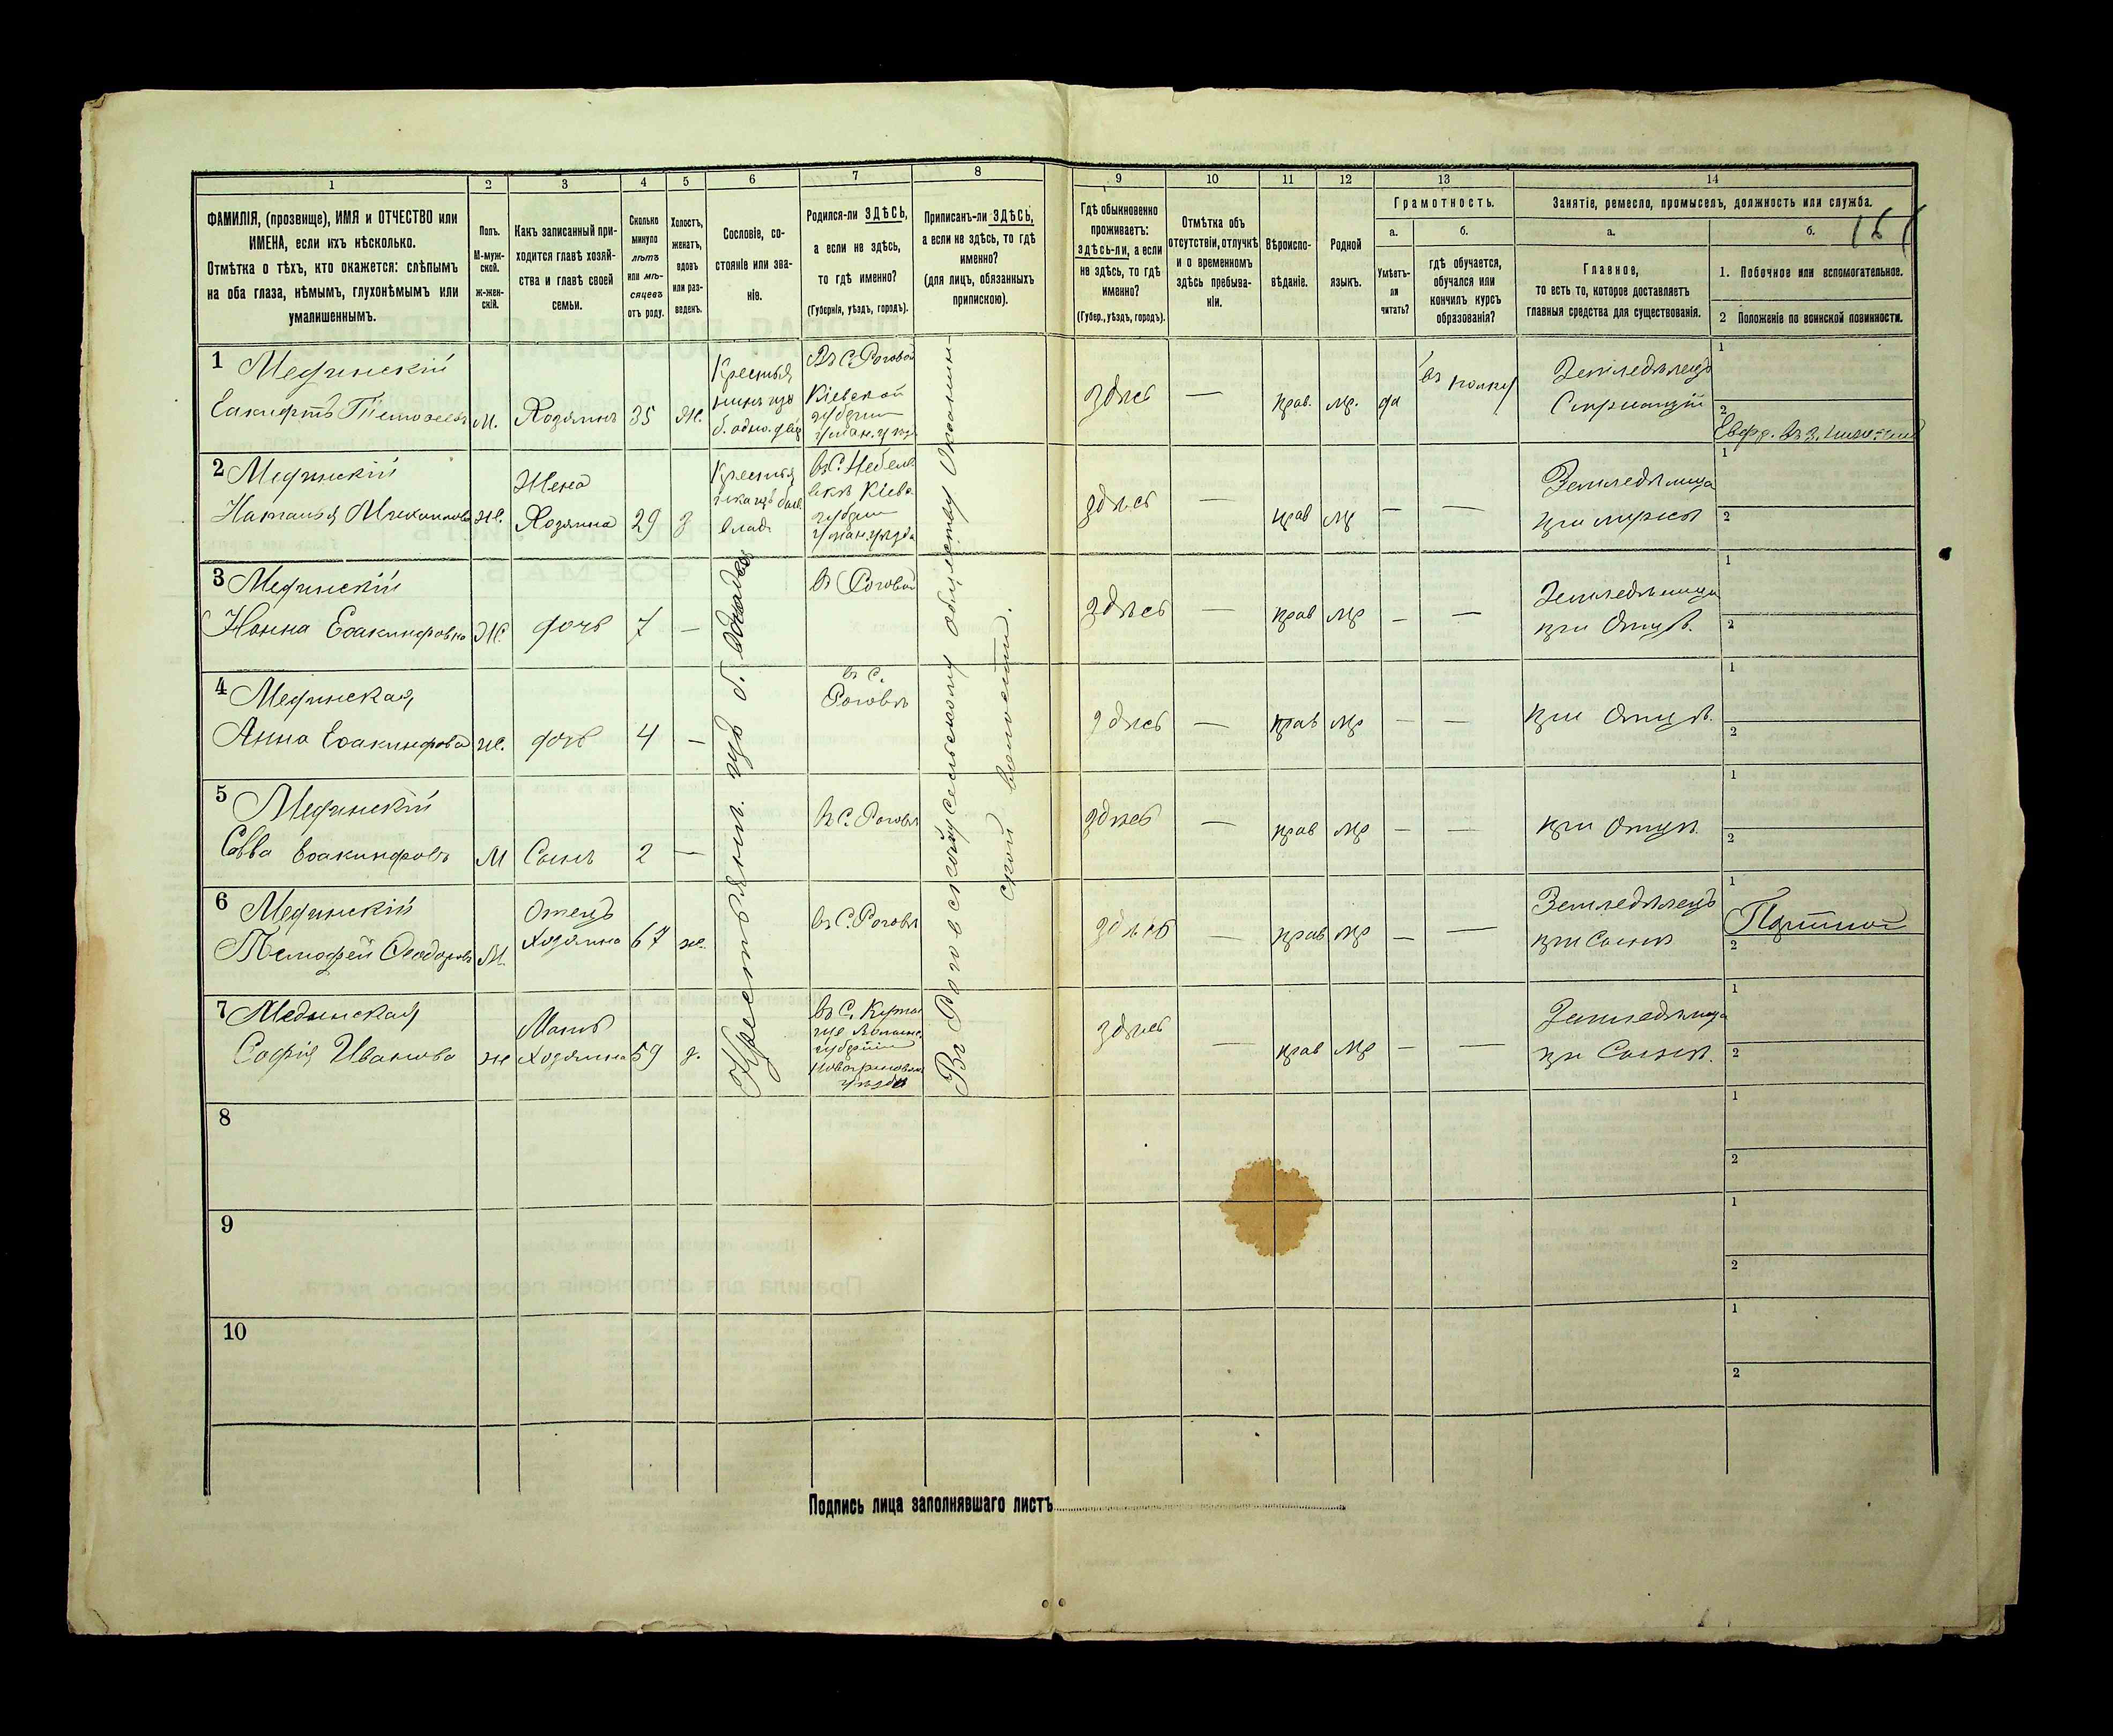 1 2 3 4 5 6 7 8 9 10 11 12 13 14
ФАМИЛІЯ, (прозвище), ИМЯ и ОТЧЕСТВО или
ИМЕНА, если ихъ нѣсколько.
Отмѣтка о тѣхъ, кто окажется: слѣпымъ
на оба глаза, нѣмымъ, глухонѣмымъ или
умалишеннымъ.
Полъ.
М-муж-
ской.
ж-жен-
скій.
Какъ записанный при-
ходится главѣ хозяй-
ства и главѣ своей
семьи.
Сколько
минуло
лѣтъ
или мѣ-
сяцевъ
отъ роду.
Холостъ,
женатъ,
вдовъ
или раз-
веденъ.
Сословіе, со-
стояніе или зва-
ніе.
Родился-ли ЗДѢСЬ,
а если не здѣсь,
то гдѣ именно?
(Губернія, уѣздъ, городъ).
Приписанъ-ли ЗДѢСЬ,
а если не здѣсь, то гдѣ
именно?
(для лицъ, обязанныхъ
припискою).
Гдѣ обыкновенно
проживаетъ:
здѣсь-ли, а если
не здѣсь, то гдѣ
именно?
(Губер., уѣздъ, городъ).
Отмѣтка объ
отсутствіи, отлучкѣ
и о временномъ
здѣсь пребыва-
ніи.
Вѣроиспо-
вѣданіе.
Родной
языкъ.
Грамотность.
а.
Умѣетъ-
ли
читать?
б.
гдѣ обучается,
обучался или
кончилъ курсъ
образованія?
Занятіе, ремесло, промыселъ, должность или служба.
а.
Главное,
то есть то, которое доставляетъ
главныя средства для существованія.
б.
1. Побочное или вспомогательное.
2 Положеніе по воинской повинности.
1 Мединскій
М. Хозяинъ 35 Ж.
Въ С. Роговой
Кіевской
губерніи
здѣсь — прав. мр. да
въ полку
Земледѣлецъ
1
2
2 Мединскій
Наталья
Ж. Жена
Хозяина 29 з
Кіевс.
здѣсь — прав мр — —
Земледѣлица
при мужѣ
1
2
3 Мединскій
Ж. дочь 7 —
въ Роговой
здѣсь — прав мр — —
Земледѣлица
при Отцѣ.
1
2
4 Мединская
Анна
ж. дочь 4 —
въ С.
Роговѣ
здѣсь — прав мр — —
при Отцѣ.
1
2
5 Мединскій
Савва
М Сынъ 2 —
въ С. Роговѣ
здѣсь — прав мр — —
при Отцѣ.
1
2
6 Мединскій
Тимофей Ѳеодоровъ
М. Отецъ
Хозяина 67 ж.
въ С. Роговѣ
здѣсь — прав мр — —
Земледѣлецъ
при Сынѣ
1
2
7 Мединская
Софія Иванова
ж Мать
Хозяина 59 з.
губерніи
уѣзда
здѣсь — прав мр — —
Земледѣлица
при Сынѣ.
1
2
Крестьянин. изъ б.
Въ Роговскому сельскому обществу
ской волости.
8
1
2
9
1
2
10
1
2
Подпись лица заполнявшаго листъ